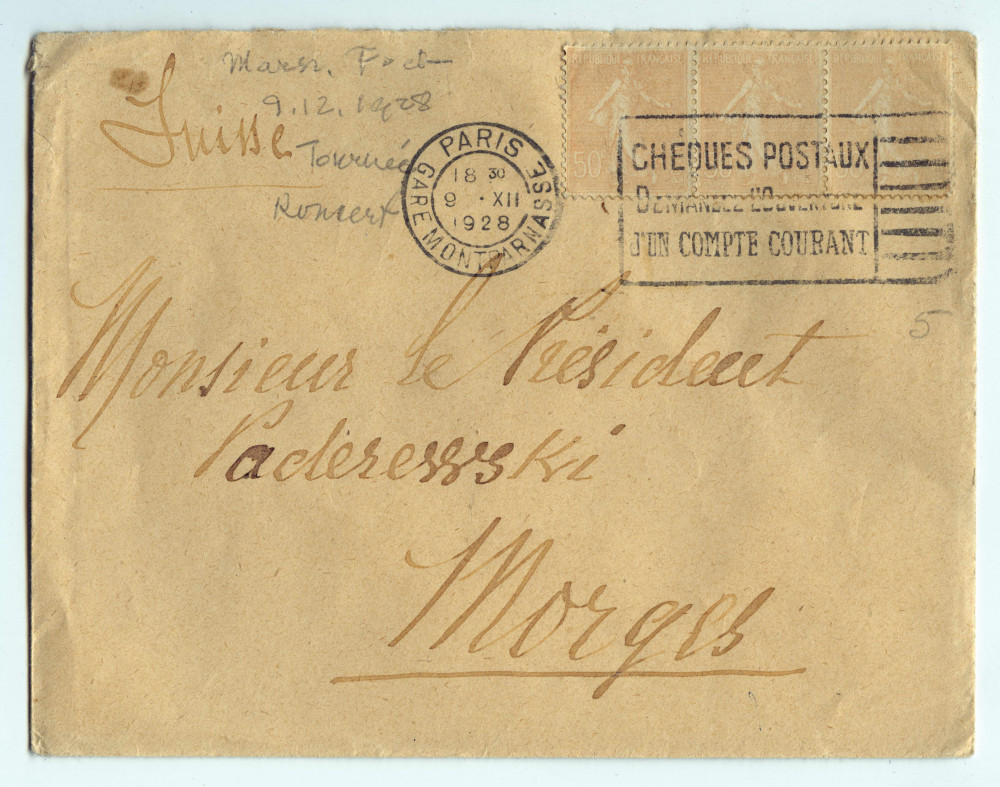 Marsz. Foch
9.12.1928
Suisse
Tournée
Koncert
PARIS
18 30
9 · XII
1928
GARE MONTPARNASSE
REPUBLIQUE FRANÇAISE REPUBLIQUE FRANÇAISE REPUBLIQUE FRANÇAISE
50
CHEQUES POSTAUX
DEMANDEZ L'OUVERTURE
D'UN COMPTE COURANT
5
Monsieur le Président
Paderewski
Morges